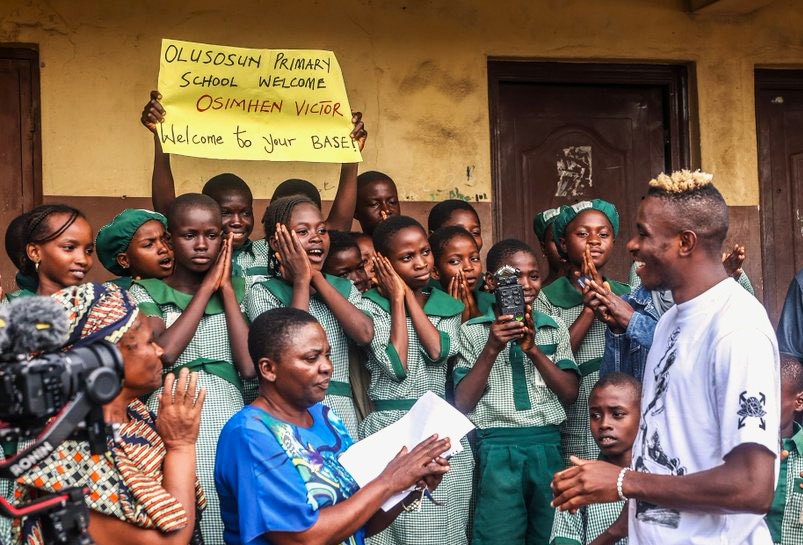 OLUSOSUN PRIMARY
SCHOOL WELCOME
OSIMHEN VICTOR
Welcome to your BASE!
RONIN